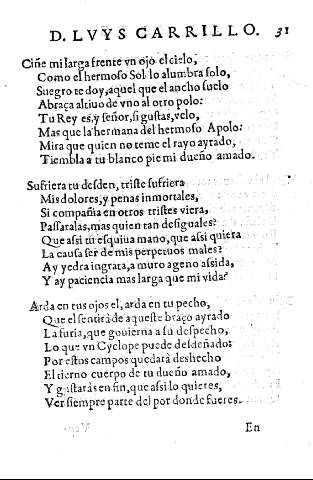 D. LVYS CARRILLO. 31
Ciñe mi larga frente vn ojo el cielo,
Como el hermoso Sol lo alumbra solo,
Suegro te doy, aquel que el ancho suelo
Abraça altiuo de vno al otro polo:
Tu Rey es, y señor, si gustas, velo,
Mas que la hermana del hermoso Apolo:
Mira que quien no teme el rayo ayrado,
Tiembla a tu blanco pie mi dueño amado.
Sufriera tu desden, triste sufriera
Mis dolores, y penas inmortales,
Si compañia en otros tristes viera,
Passaralas, mas quien tan desiguales?
Que assi tu esquiua mano, que assi quiera
La causa ser de mis perpetuos males?
Ay yedra ingrata, a muro ageno assida,
Y ay paciencia mas larga que mi vida?
Arda en tus ojos el, arda en tu pecho,
Que el sentirà de aqueste braço ayrado
La furia, que gouierna a su despecho,
Lo que vn Cyclope puede desdeñado:
Por estos campos quedarà deshecho
El tierno cuerpo de tu dueño amado,
Y gustaràs en fin, que assi lo quieres,
Ver siempre parte del por donde fueres.
En